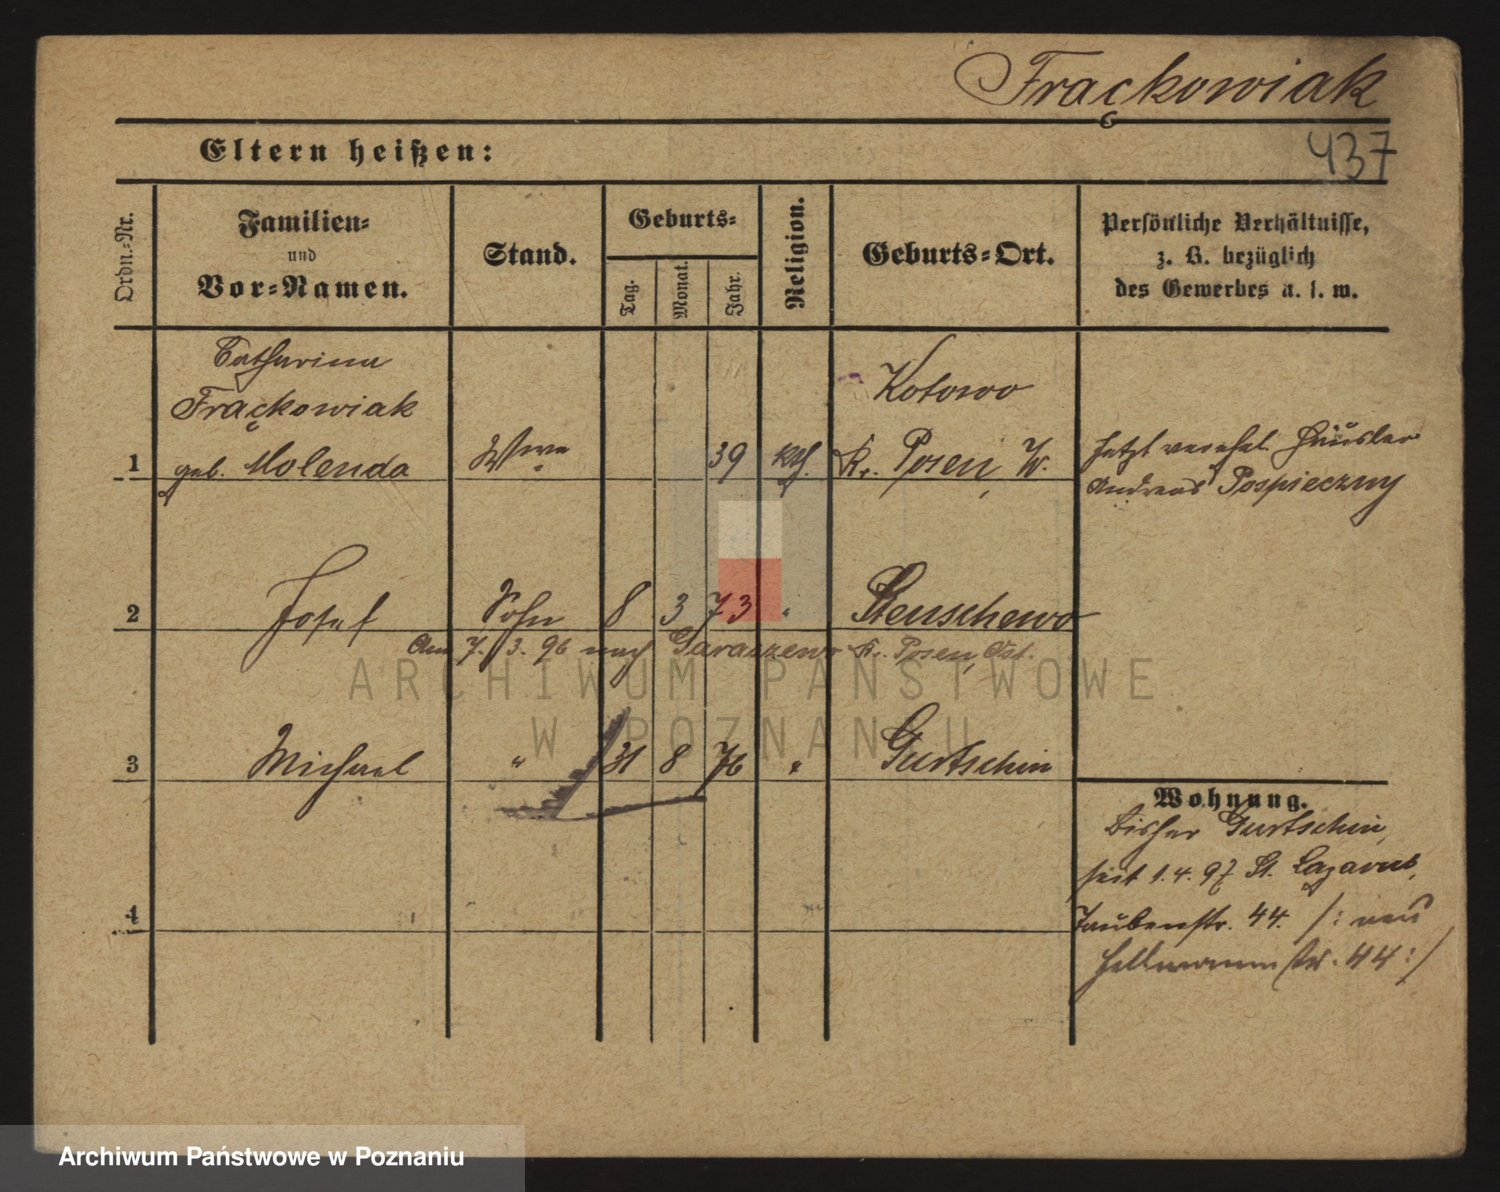 Frąckowiak
437
Eltern heißen:
Ordn.-Nr.
Familien-
und
Vor-Namen.
Stand.
Geburts-
Tag.
Monat.
Jahr.
Religion.
Geburts-Ort.
Persönliche Verhältnisse,
z. B. bezüglich
des Gewerbes u. s. w.
Catharina
Frąckowiak
1 geb. Molenda Wwe 39 kth. Kotowo
Kr. Posen, W.
Jetzt verehel. Häusler
Andreas Pospieczny
2 Josef Sohn 8 3 73 " Stenschewo
Am 7. 3. 96 nach Garaszewo Kr. Posen, Ost.
3 Michael " 31 8 76 " Gurtschin
4
Wohnung.
Bisher Gurtschin,
seit 1.4.97 St. Lazarus,
Taubenstr. 44. /: neu
Hellmannstr. 44 :/
ARCHIWUM PAŃSTWOWE
W POZNANIU
Archiwum Państwowe w Poznaniu